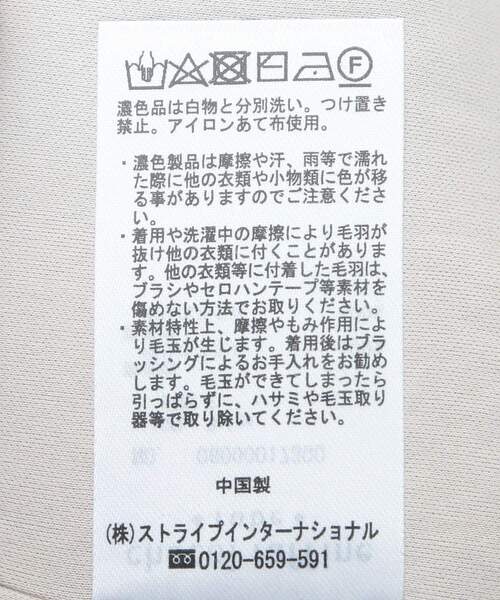 F
濃色品は白物と分別洗い。つけ置き
禁止。アイロンあて布使用。
・濃色製品は摩擦や汗、雨等で濡れ
た際に他の衣類や小物類に色が移
る事がありますのでご注意くださ
い。
・着用や洗濯中の摩擦により毛羽が
抜け他の衣類に付くことがありま
す。他の衣類等に付着した毛羽は、
ブラシやセロハンテープ等素材を
傷めない方法でお取りください。
・素材特性上、摩擦やもみ作用によ
り毛玉が生じます。着用後はブラ
ッシングによるお手入れをお勧め
します。毛玉ができてしまったら
引っぱらずに、ハサミや毛玉取り
器等で取り除いてください。
中国製
(株)ストライプインターナショナル
0120-659-591